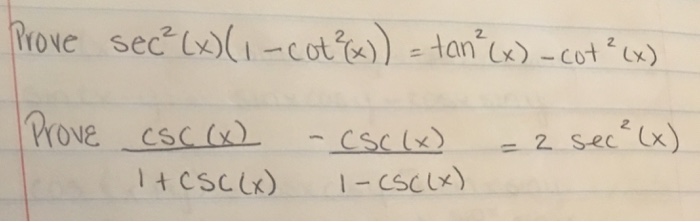 Prove sec²(x)(1-cot²(x)) = tan²(x) - cot²(x)
Prove csc(x)/(1+csc(x)) - csc(x)/(1-csc(x)) = 2 sec²(x)